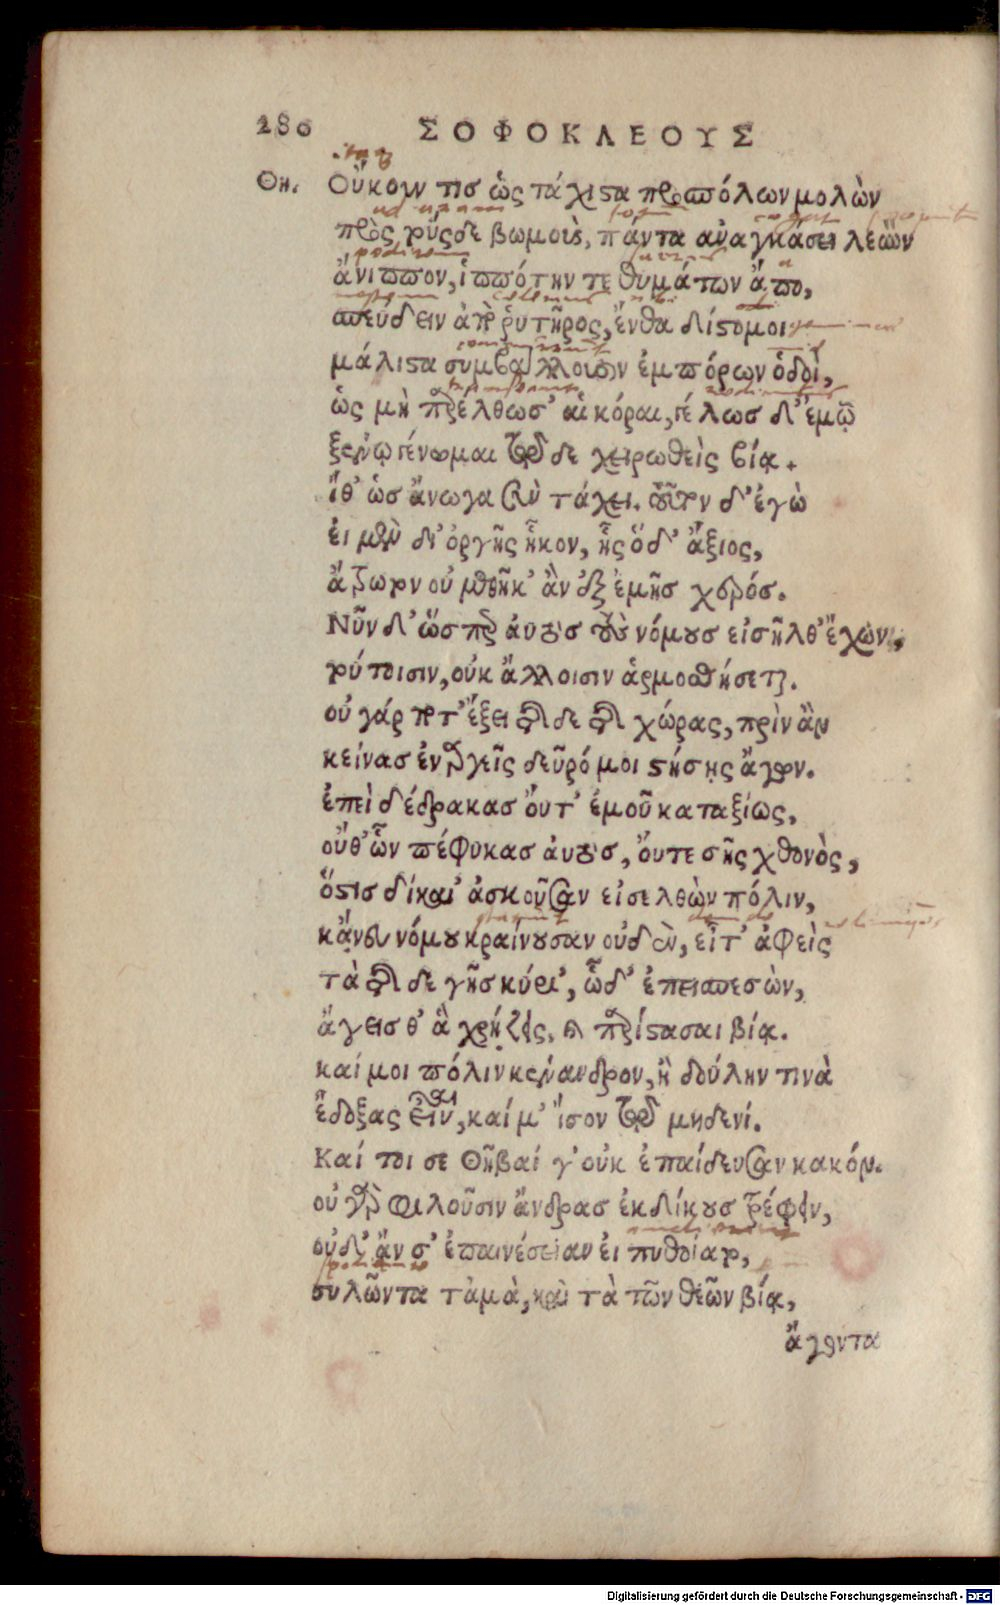 280 ΣΟΦΟΚΛΕΟΥΣ
Θη. Οὔκουν τις ὡς τάχιστα προσπόλων μολὼν
πρὸς τούςδε βωμοὺς, πάντα ἀναγκάσει λεὼν
ἄνιππον, ἱππότην τε θυμάτων ἄπο,
σπεύδειν ἀπὸ ῥυτῆρος, ἔνθα δίστομοι
μάλιστα συμβάλλουσιν ἐμπόρων ὁδοὶ,
ὡς μὴ παρέλθωσ' αἱ κόραι, γέλως δ' ἐμῷ
ξένῳ γένωμαι τῷδε χειρωθεὶς βίᾳ.
ἴθ' ὡς ἄνωγα σὺν τάχει. τοῦτον δ' ἐγὼ
εἰ μὲν δι' ὀργῆς ἧκον, ἧς ὅδ' ἄξιος,
ἄτρωτον οὐ μεθῆκ' ἂν ἐξ ἐμῆς χερός.
Νῦν δ' ὥσπερ αὐτὸς τοὺς νόμους εἰσῆλθ' ἔχων,
τούτοισιν, οὐκ ἄλλοισιν ἁρμοσθήσεται.
οὐ γάρ ποτ' ἔξει τῆσδε τῆς χώρας, πρὶν ἂν
κείνας ἐναργεῖς δεῦρό μοι στήσῃς ἄγων.
ἐπεὶ δέδρακας οὔτ' ἐμοῦ καταξίως,
οὔθ' ὧν πέφυκας αὐτὸς, οὔτε σῆς χθονὸς,
ὅστις δίκαι' ἀσκοῦσαν εἰσελθὼν πόλιν,
κἄνευ νόμου κραίνουσαν οὐδὲν, εἶτ' ἀφεὶς
τὰ τῆσδε γῆς κύρι', ὧδ' ἐπεισπεσὼν,
ἄγεις θ' ἃ χρῄζεις, καὶ παρίστασαι βίᾳ.
καί μοι πόλιν κένανδρον, ἢ δούλην τινὰ
ἔδοξας εἶναι, καί μ' ἴσον τῷ μηδενί.
Καί τοι σε Θῆβαί γ' οὐκ ἐπαίδευσαν κακόν.
οὐ γὰρ φιλοῦσιν ἄνδρας ἐκδίκους τρέφειν,
οὐδ' ἄν σ' ἐπαινέσειαν εἰ πυθοίατο,
συλῶντα τἀμὰ, καὶ τὰ τῶν θεῶν βίᾳ,
ἄγοντα
Digitalisierung gefördert durch die Deutsche Forschungsgemeinschaft - DFG